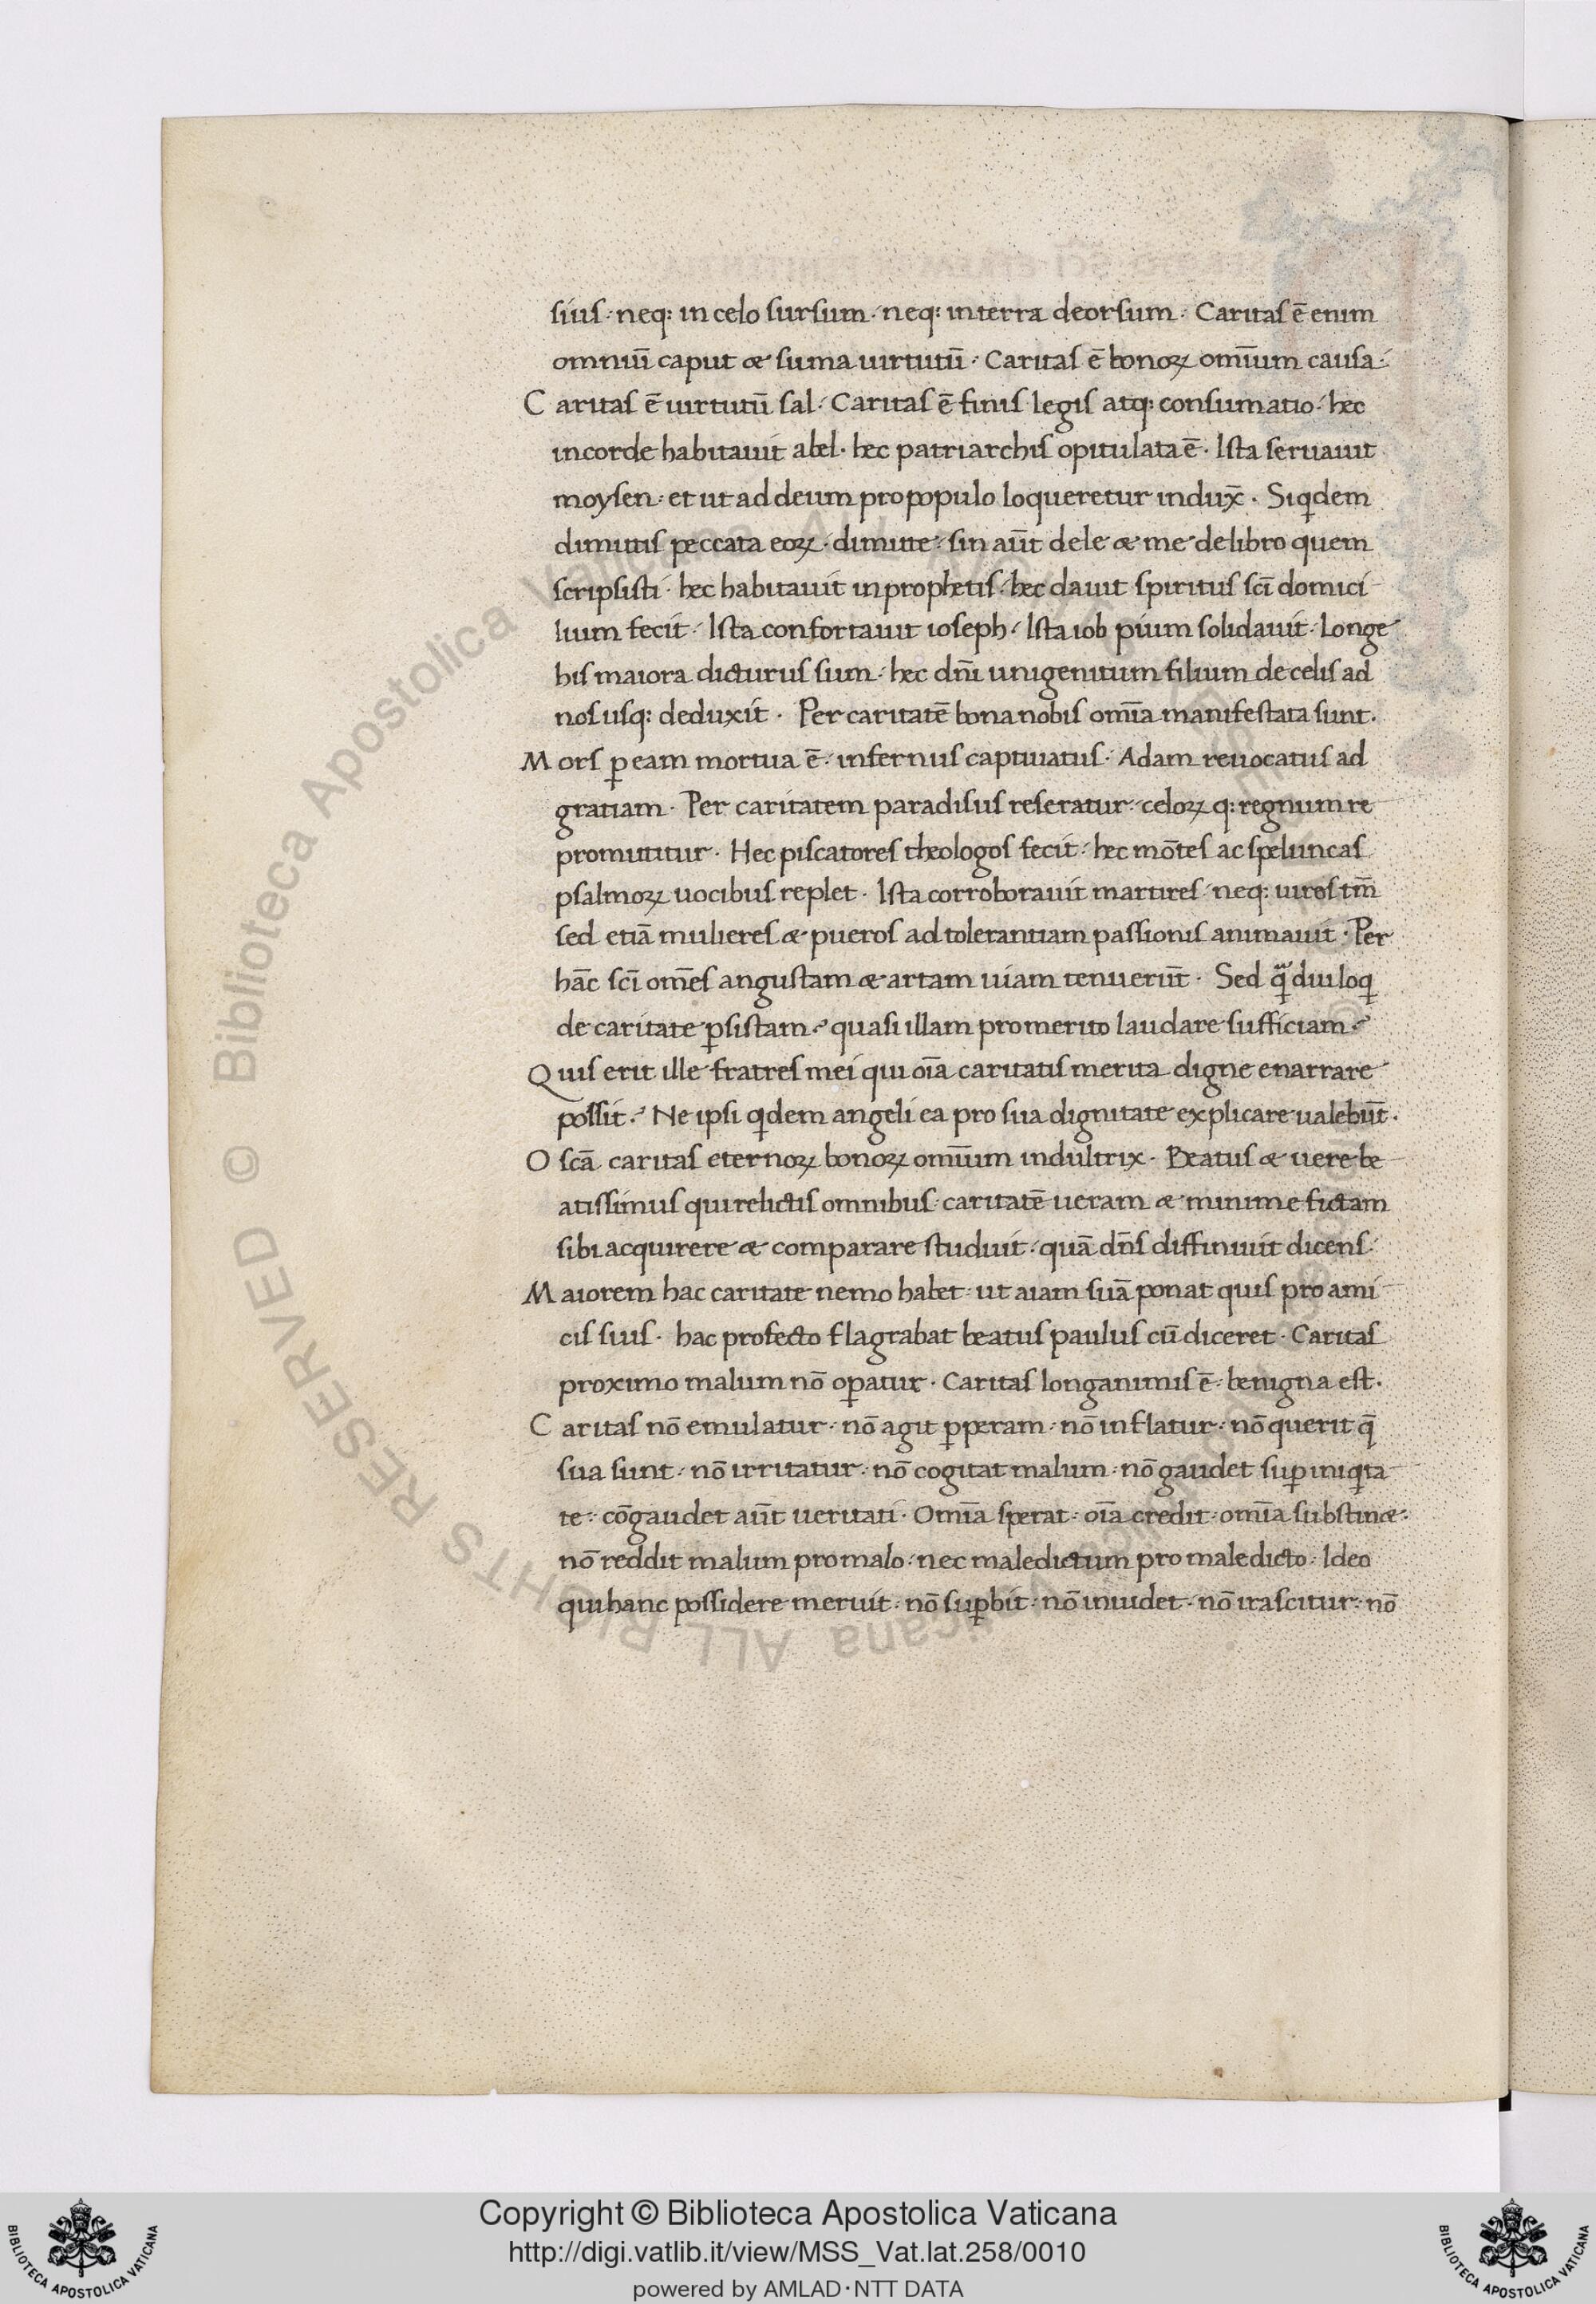 sius · neq: in celo sursum · neq: in terra deorsum · Caritas ē enim
omniū caput & suma uirtutū · Caritas ē bonoꝝ om̄ium causa ·
Caritas ē uirtutū sal · Caritas ē finis legis atq: consumatio · hec
in corde habitauit abel · hec patriarchis opitulata ē · Ista seruauit
moysen · et ut ad deum pro populo loqueretur indux̄ · Siqdem
dimittis peccata eoꝝ · dimitte · sin aūt dele & me de libro quem
scripsisti · hec habitauit in prophetis · hec dauit spiritus sc̄i domici
lium fecit · Ista confortauit ioseph · Ista iob pium solidauit · Longe
his maiora dicturus sum · hec dn̄i unigenitum filium de celis ad
nos usq: deduxit · Per caritatē bona nobis om̄ia manifestata sunt ·
Mors ꝑ eam mortua ē · infernus captiuatus · Adam reuocatus ad
gratiam · Per caritatem paradisus reseratur · celoꝝ q: regnum re
promittitur · Hec piscatores theologos fecit · hec mōtes ac speluncas
psalmoꝝ uocibus replet · Ista corroborauit martires · neq: uiros tm̄
sed etiā mulieres & pueros ad tolerantiam passionis animauit · Per
hāc sc̄i om̄es angustam & artam uiam tenuerūt · Sed q̄ diu loq
de caritate ꝑsistam ? quasi illam pro merito laudare sufficiam ?
Quis erit ille fratres mei qui oīa caritatis merita digne enarrare
possit ? Ne ipsi qdem angeli ea pro sua dignitate explicare ualebūt ·
O scā caritas eternoꝝ bonoꝝ om̄ium indultrix · Beatus & uere be
atissimus qui relictis omnibus caritatē ueram & minime fictam
sibi acquirere & comparare studuit · quā dn̄s diffiniuit dicens ·
Maiorem hac caritate nemo habet · ut aiam suā ponat quis pro ami
cis suis · hac profecto flagrabat beatus paulus cū diceret · Caritas
proximo malum nō oꝑatur · Caritas longanimis ē · benigna est ·
Caritas nō emulatur · nō agit ꝑperam · nō inflatur · nō querit q̄
sua sunt · nō irritatur · nō cogitat malum · nō gaudet suꝑ iniqita
te · cōgaudet aūt ueritati · Om̄ia sperat · oīa credit · om̄ia substin& ·
nō reddit malum pro malo · nec maledictum pro maledicto · Ideo
qui hanc possidere meruit · nō suꝑbit · nō inuidet · nō irascitur · nō
© Biblioteca Apostolica Vaticana ALL RIGHTS RESERVED
Copyright © Biblioteca Apostolica Vaticana
http://digi.vatlib.it/view/MSS_Vat.lat.258/0010
powered by AMLAD·NTT DATA
BIBLIOTECA APOSTOLICA VATICANA
BIBLIOTECA APOSTOLICA VATICANA